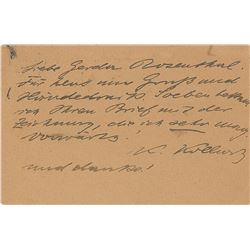 Liebe Gerda Rosenthal.
Für heut nur Gruß und
Händedruck. Soeben bekam
ich Ihren Brief mit der
Zeichnung, die ich sehr mag
vorwärts!
K. Kollwitz
und danke!